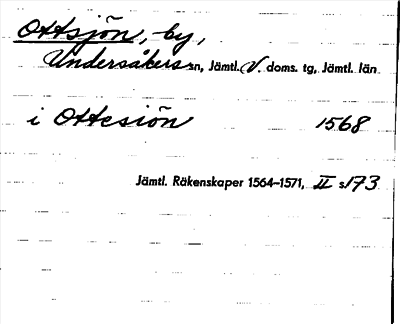 Ottsjön, by,
Undersåkers sn, Jämtl. V. doms. tg, Jämtl. län
i Ottesiön 1568
Jämtl. Räkenskaper 1564–1571, II s. 173